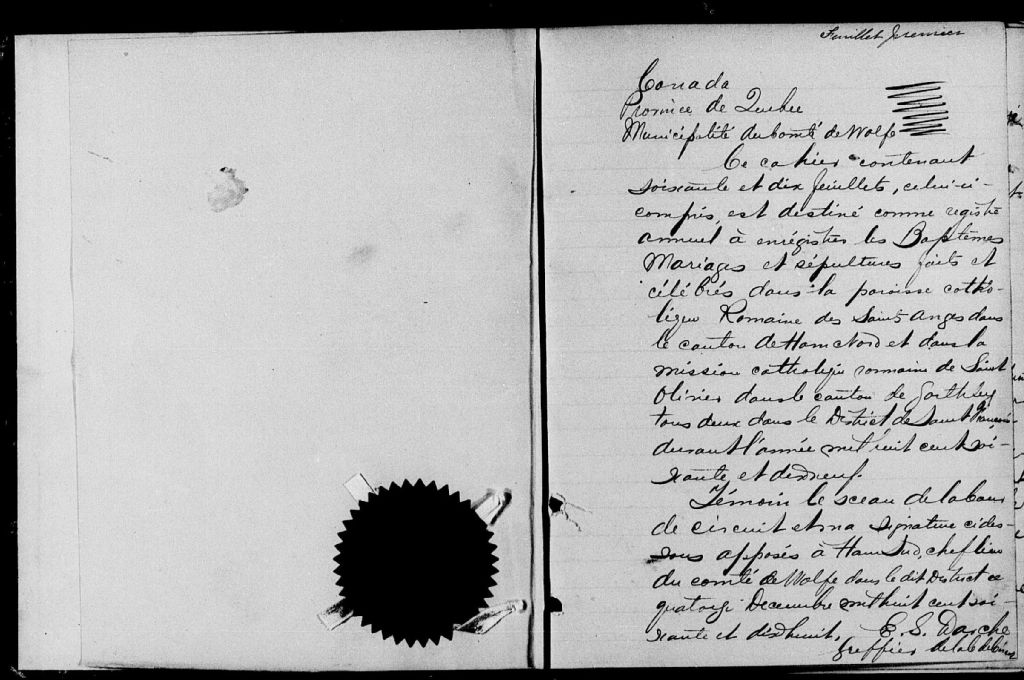 Feuillet premier
Canada
Province de Quebec
Municipalité du Comté de Wolfe
Ce cahier contenant
soixante et dix feuillets, celui-ci
compris, est destiné comme registre
annuel à enrégistrer les Baptêmes
Mariages et sépultures faits et
célébrés dans la paroisse catho-
lique Romaine des Saints Anges dans
le canton de Ham Nord et dans la
mission catholique romaine de Saint
Olivier dans le canton de Garthby
tous deux dans le District de Saint François
durant l'année mil huit cent soi-
xante et dixneuf.
Témoin le sceau de la Cour
de circuit et ma signature ci des-
sous apposés à Ham Sud, chef lieu
du comté de Wolfe dans le dit District ce
quatorze Decembre mil huit cent soi-
xante et dixhuit. E. S. Darche
Greffier de la